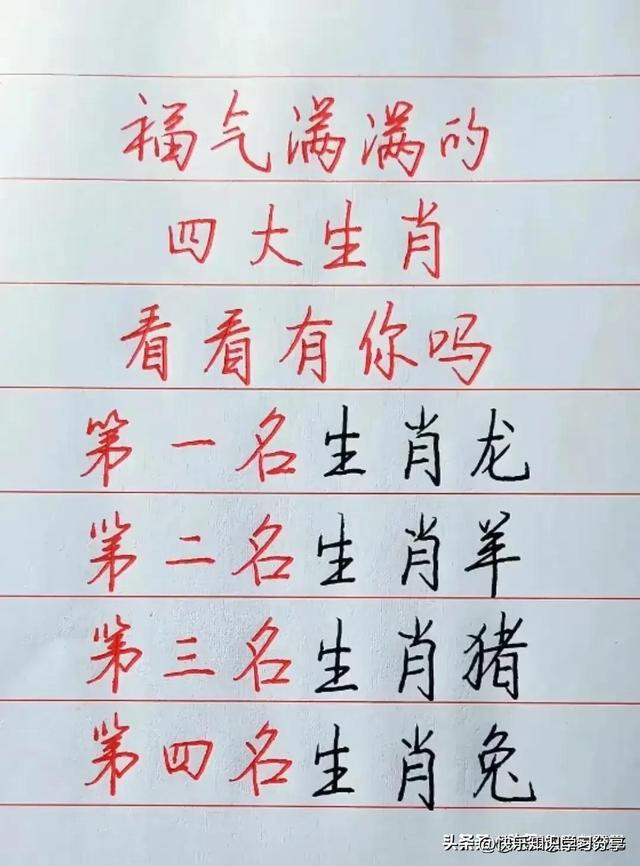 福气满满的
四大生肖
看看有你吗
第一名生肖龙
第二名生肖羊
第三名生肖猪
第四名生肖兔
头条 @快乐知识学习分享